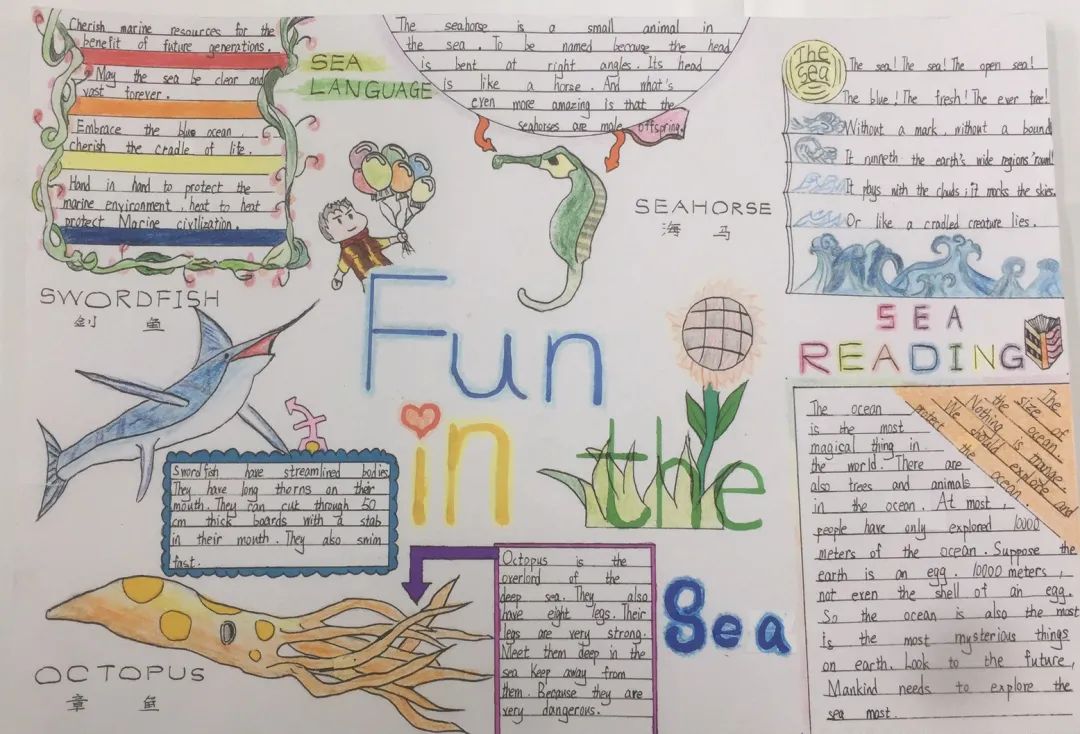 Cherish marine resources for the
benefit of future generations.
May the sea be clear and
vast forever.
Embrace the blue ocean,
cherish the cradle of life.
Hand in hand to protect the
marine environment, heat to heat
protect Marine civilization.
SEA
LANGUAGE
The seahorse is a small animal in
the sea. To be named because the head
is bent at right angles. Its head
is like a horse. And what's
even more amazing is that the
seahorses are male offspring.
SEAHORSE
海 马
The
sea
The sea! The sea! The open sea!
The blue! The fresh! The ever free!
Without a mark, without a bound
It runneth the earth's wide regions 'round!
It plays with the clouds; it mocks the skies.
Or like a cradled creature lies.
SEA
READING
SWORDFISH
剑 鱼
Swordfish have streamlined bodies
They have long thorns on their
mouth. They can cut through 50
cm thick boards with a stab
in their mouth. They also swim
fast.
Fun
in
the
Sea
OCTOPUS
章 鱼
Octopus is the
overlord of the
deep sea. They also
have eight legs. Their
legs are very strong.
Meet them deep in the
sea Keep away from
them. Because they are
very dangerous.
The ocean
is the most
magical thing in
the world. There are
also trees and animals
in the ocean. At most,
people have only explored 10000
meters of the ocean. Suppose the
earth is an egg. 10000 meters,
not even the shell of an egg.
So the ocean is also the most
is the most mysterious things
on earth. Look to the future,
Mankind needs to explore the
sea most.
The
size of
the ocean.
Nothing is
We should explore and
protect the ocean